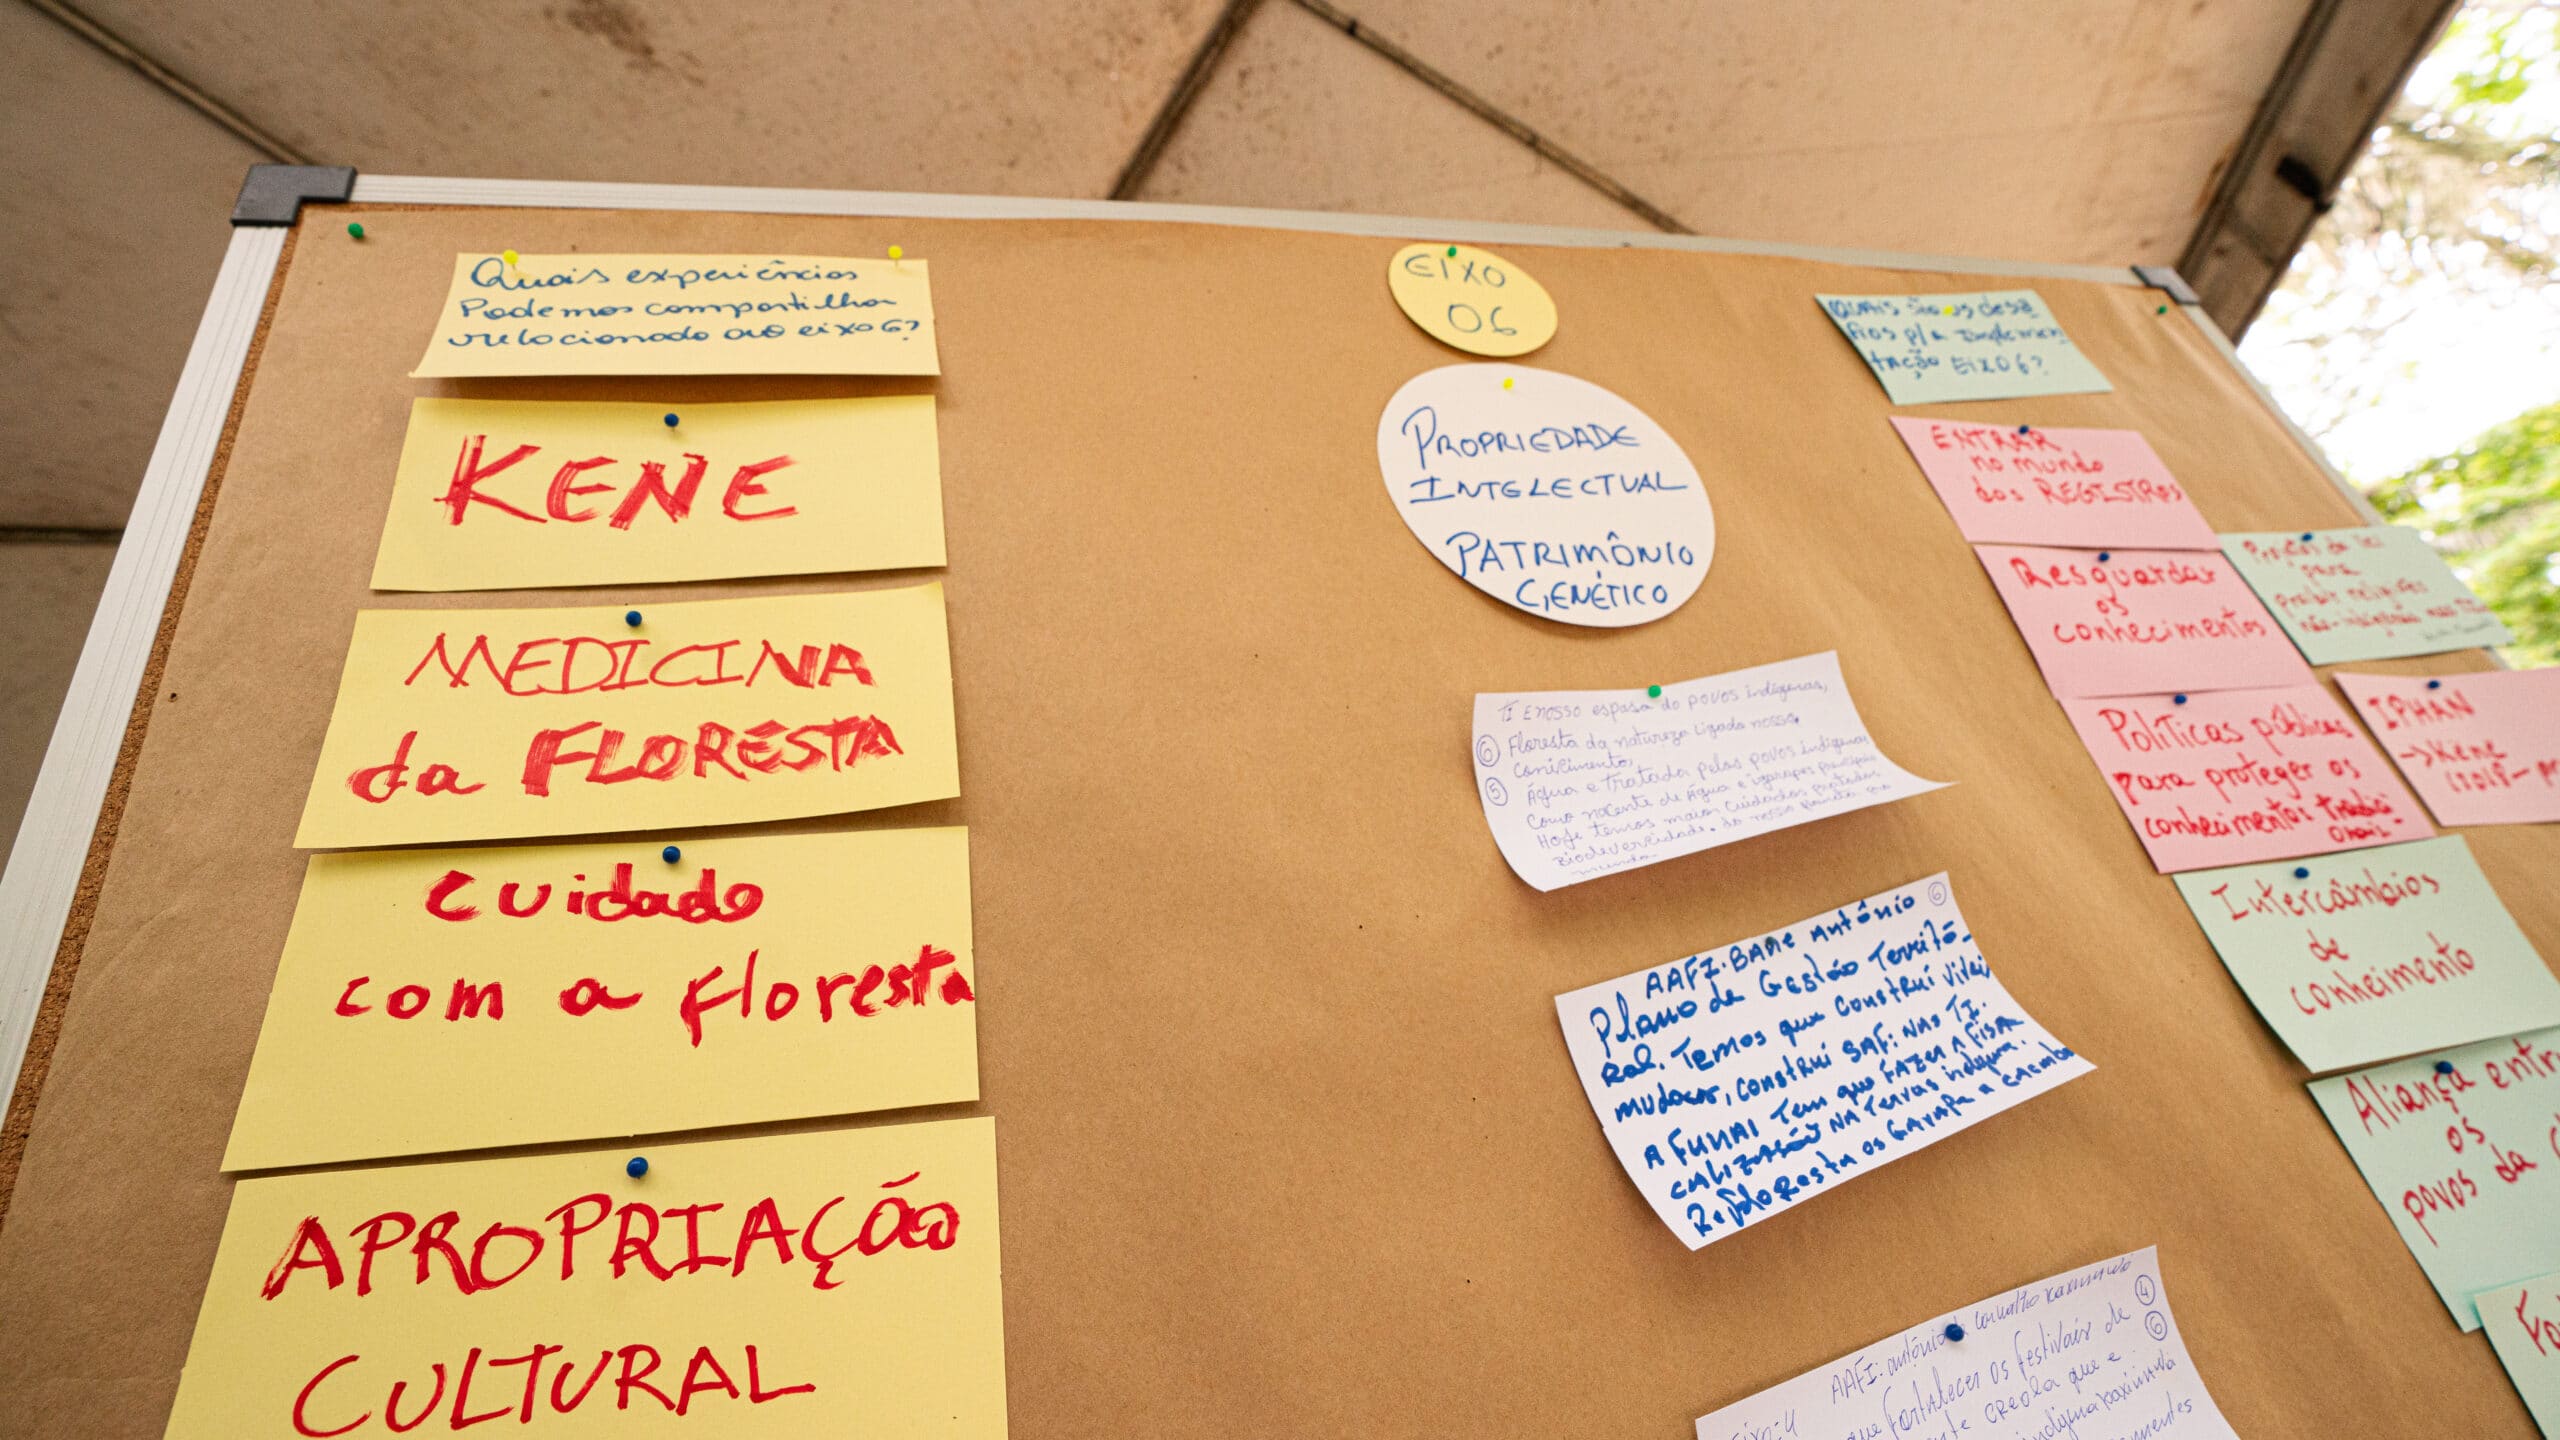 Quais experiências
Podemos compartilha
relacionado ao eixo 6?
KENE
MEDICINA
da FLORESTA
Cuidado
com a floresta
APROPRIAÇÃO
CULTURAL
EIXO
06
PROPRIEDADE
INTELECTUAL
PATRIMÔNIO
GENÉTICO
TI E nosso espasa do povos indígenas,
⑥ Floresta da natureza Ligada nosso,
⑤ Água e Tratada pelos povos indígenas
como nacente de Água e igarapes
Hoje temos maior cuidados
do nosso planeta
AAFI. BANE Antônio ⑥
Plano de Gestão Territó-
Ral. Temos que construi vivei
mudas, construi SAF: NAS TI.
A FUNAI Tem que FAZER A FISA
CALIZASÃO NA Terras indigena.
os GARAPA A
AAFI: antônio de Carvalho Kaxinawá ④
Eixo: 4
que Fortalecer os Festivais de ⑥
QUAIS são os desa
fios p/ a Implemen
tação EIXO 6?
ENTRAR
no mundo
dos REGISTROS
Resguardar
os
conhecimentos
Políticas públicas
para proteger os
conhecimentos tradici
onais.
para
proibir religiões
IPHAN
→ Kene
Intercâmbios
de
conhecimento
Aliança entr
os
povos da
Fo